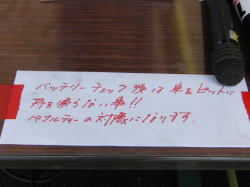 バッテリーチェック後は車をピットに
持ち帰らない事!!
ペナルティーの対象になります。